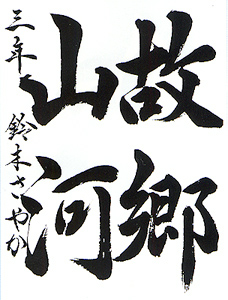 故郷
山河
三年 鈴木さやか